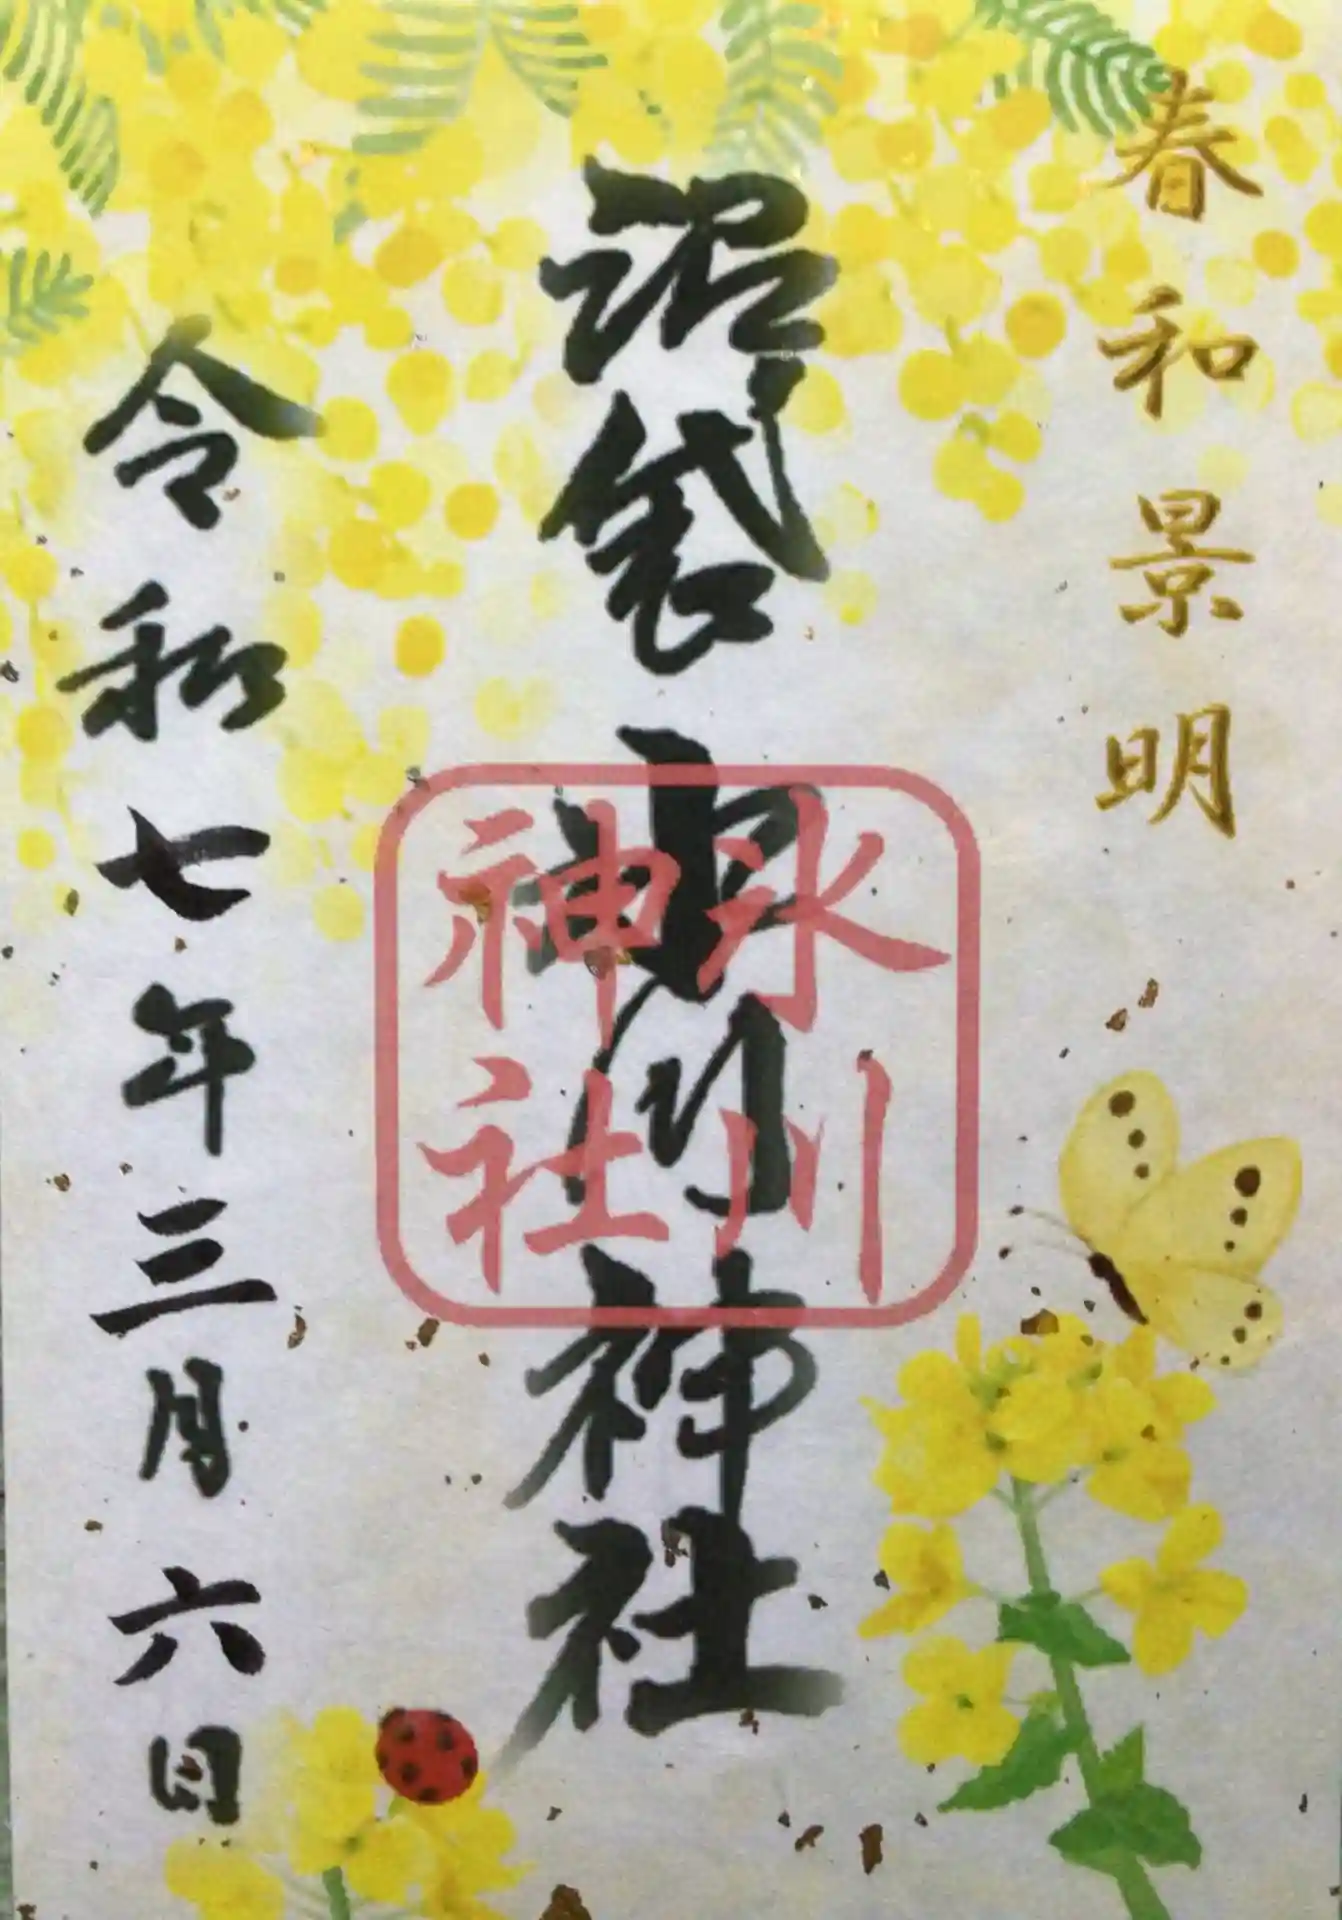 春和景明
沼袋氷川神社
氷川
神社
令和七年三月六日